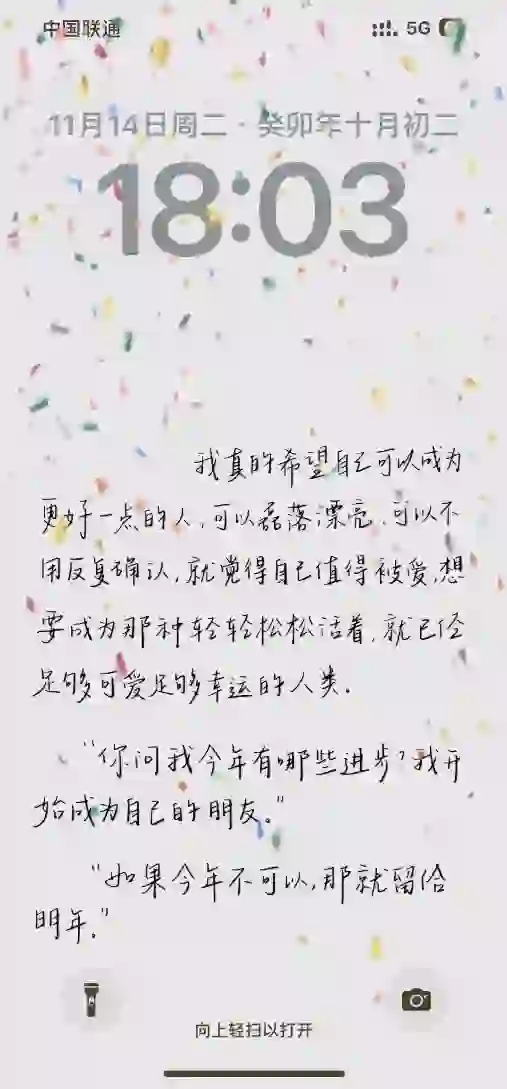 中国联通 5G
11月14日周二·癸卯年十月初二
18:03
我真的希望自己可以成为
更好一点的人,可以磊落漂亮,可以不
用反复确认,就觉得自己值得被爱,想
要成为那种轻轻松松活着,就已经
足够可爱足够幸运的人类.
“你问我今年有哪些进步?我开
始成为自己的朋友。”
“如果今年不可以,那就留给
明年。”
向上轻扫以打开